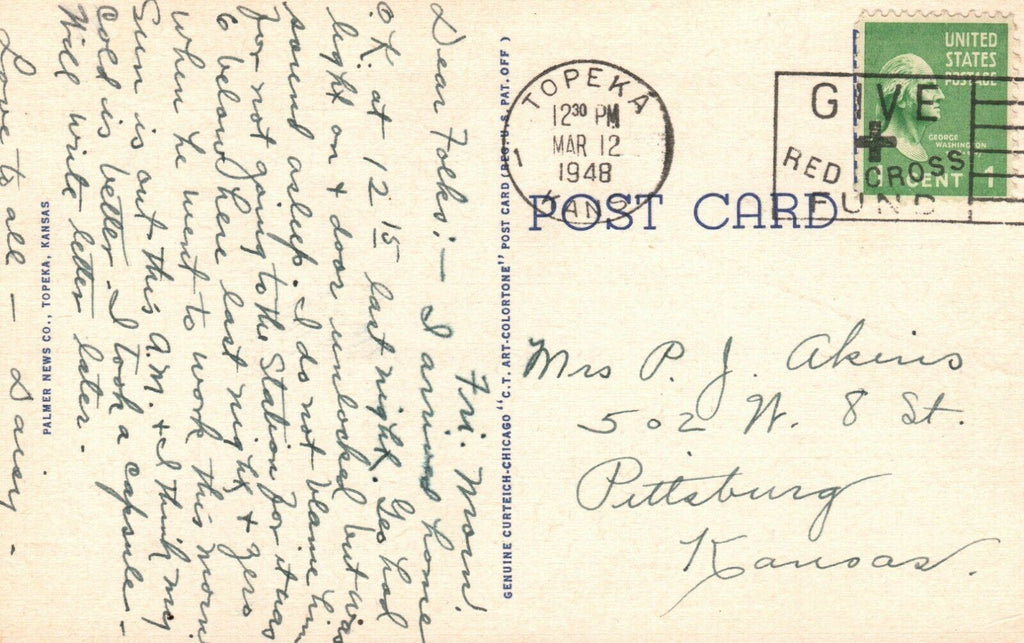 Fri. Morn.
Dear Folks:— I arrived home
O.K. at 12 15 last night. Geo had
light on & door unlocked but was
sound asleep. I do not blame him
for not going to the Station for it was
6 below here last night & zero
when he went to work this morn
Sun is out this A.M. & I think my
cold is better. I took a capsule—
Will write letter later.
Love to all —
PALMER NEWS CO., TOPEKA, KANSAS
GENUINE CURTEICH-CHICAGO "C.T. ART-COLORTONE" POST CARD (REG. U.S. PAT. OFF.)
TOPEKA
12 30 PM
MAR 12
1948
1
KANS.
GIVE
RED CROSS
FUND
UNITED
STATES
POSTAGE
GEORGE
WASHINGTON
CENT 1
POST CARD
Mrs P. J. Akins
502 W. 8 St.
Pittsburg
Kansas.